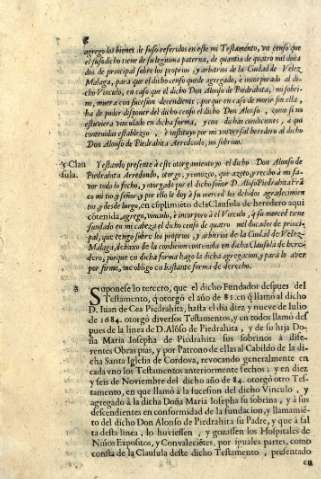 8
agrego los bienes de suso referidos en este mi Testamento, un censo que
el suso dicho tiene de su legitima paterna, de quantia de quatro mil duca-
dos de principal sobre los proprios, y arbitrios de la Ciudad de Velez
Malaga, para que el dicho censo quede agregado, è incorporado al di-
cho Vinculo, en caso que el dicho Don Alonso de Piedrahita, mi sobri-
no, muera con sucession decendiente, porque en caso de morir sin ella,
ha de poder disponer del dicho censo el dicho Don Alonso, como si no
estuviera vinculado en dicha forma, y con dichas condiciones, a que
continuidas establezco, è instituyo por mi universal heredero al dicho
Don Alonso de Piedrahita Arredondo, mi sobrino.
3. Clau
sula.
Y estando presente à este otorgamiento yo el dicho Don Alonso de
Piedrahita Arredondo, otorgo, y conozco, que azeto, y recibo à mi fa-
vor todo lo fecho, y otorgado por el dicho señor D. Alonso Piedrahita
mi tio, y señor, y por ello le doy à su merced las debidas agradecimien-
tos, y desde luego, en cumplimiento de la Clausula de heredero aqui
contenida, agrego, vinculo, è incorporo à el Vinculo, q̃ su merced tiene
fundado en mi cabeza el dicho censo de quatro mil ducados de princi-
pal, que tengo sobre los proprios, y arbitrios de la Ciudad de Velez-
Malaga, debaxo de la condicion contenida en dicha Clausula de here-
dero, porque en dicha forma hago la dicha agregacion, y para lo aver
por firme, me obligo en bastante forma de derecho.
3
Suponese lo tercero, que el dicho Fundador despues del
Testamento, q̃ otorgò el año de 81. en q̃ llamò al dicho
D. Juan de Cea Piedrahita, hasta el dia diez y nueve de Julio
de 1684. otorgò diversos Testamentos, y en todos llamò des-
pues de la linea de D. Alõso de Piedrahita, y de su hija Do-
ña Maria Josepha de Piedrahita sus sobrinos à dife-
rentes Obras pias, y por Patrono de ellas al Cabildo de la di-
cha Santa Iglesia de Cordova, revocando generalmente en
cada vno los Testamentos anteriormente fechos; y en diez
y seis de Noviembre del dicho año de 84. otorgò otro Testa-
mento, en que llamò à la sucession del dicho Vinculo, y
agregado à la dicha Doña Maria Josepha su sobrina, y à sus
descendientes en conformidad de la fundacion, y llamamiẽ-
to del dicho Don Alonso de Piedrahita su Padre, y que à fal-
ta desta linea, lo huviessen, y gozassen los Hospitales de
Niños Expositos, y Convalecientes, por iguales partes, como
consta de la Clausula deste dicho Testamento, presentado
en